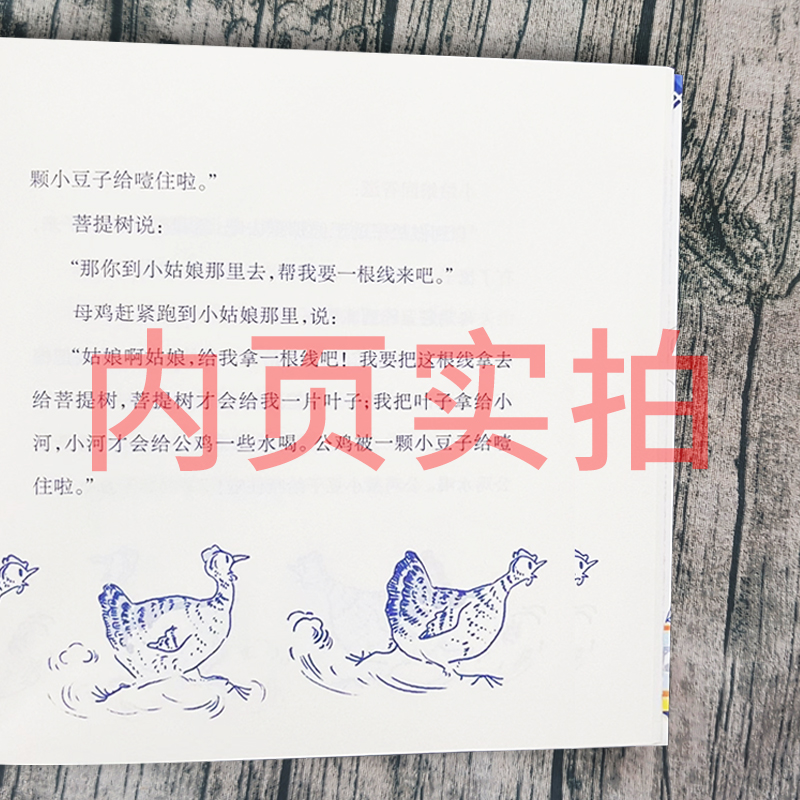 颗小豆子给噎住啦。”
菩提树说：
“那你到小姑娘那里去，帮我要一根线来吧。”
母鸡赶紧跑到小姑娘那里，说：
“姑娘啊姑娘，给我拿一根线吧！我要把这根线拿去
给菩提树，菩提树才会给我一片叶子；我把叶子拿给小
河，小河才会给公鸡一些水喝。公鸡被一颗小豆子给噎
住啦。”
内页实拍